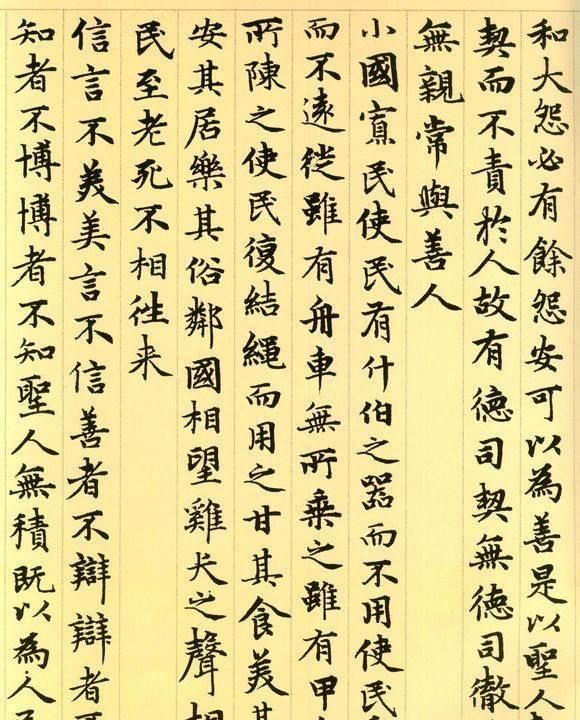 和大怨必有餘怨安可以為善是以聖人
契而不責於人故有徳司契無徳司徹
無親常與善人
小國寡民使民有什伯之器而不用使民
而不遠徙雖有舟車無所乗之雖有甲
所陳之使民復結繩而用之甘其食美其
安其居樂其俗鄰國相望雞犬之聲相
民至老死不相徃来
信言不美美言不信善者不辯辯者不
知者不博博者不知聖人無積既以為人